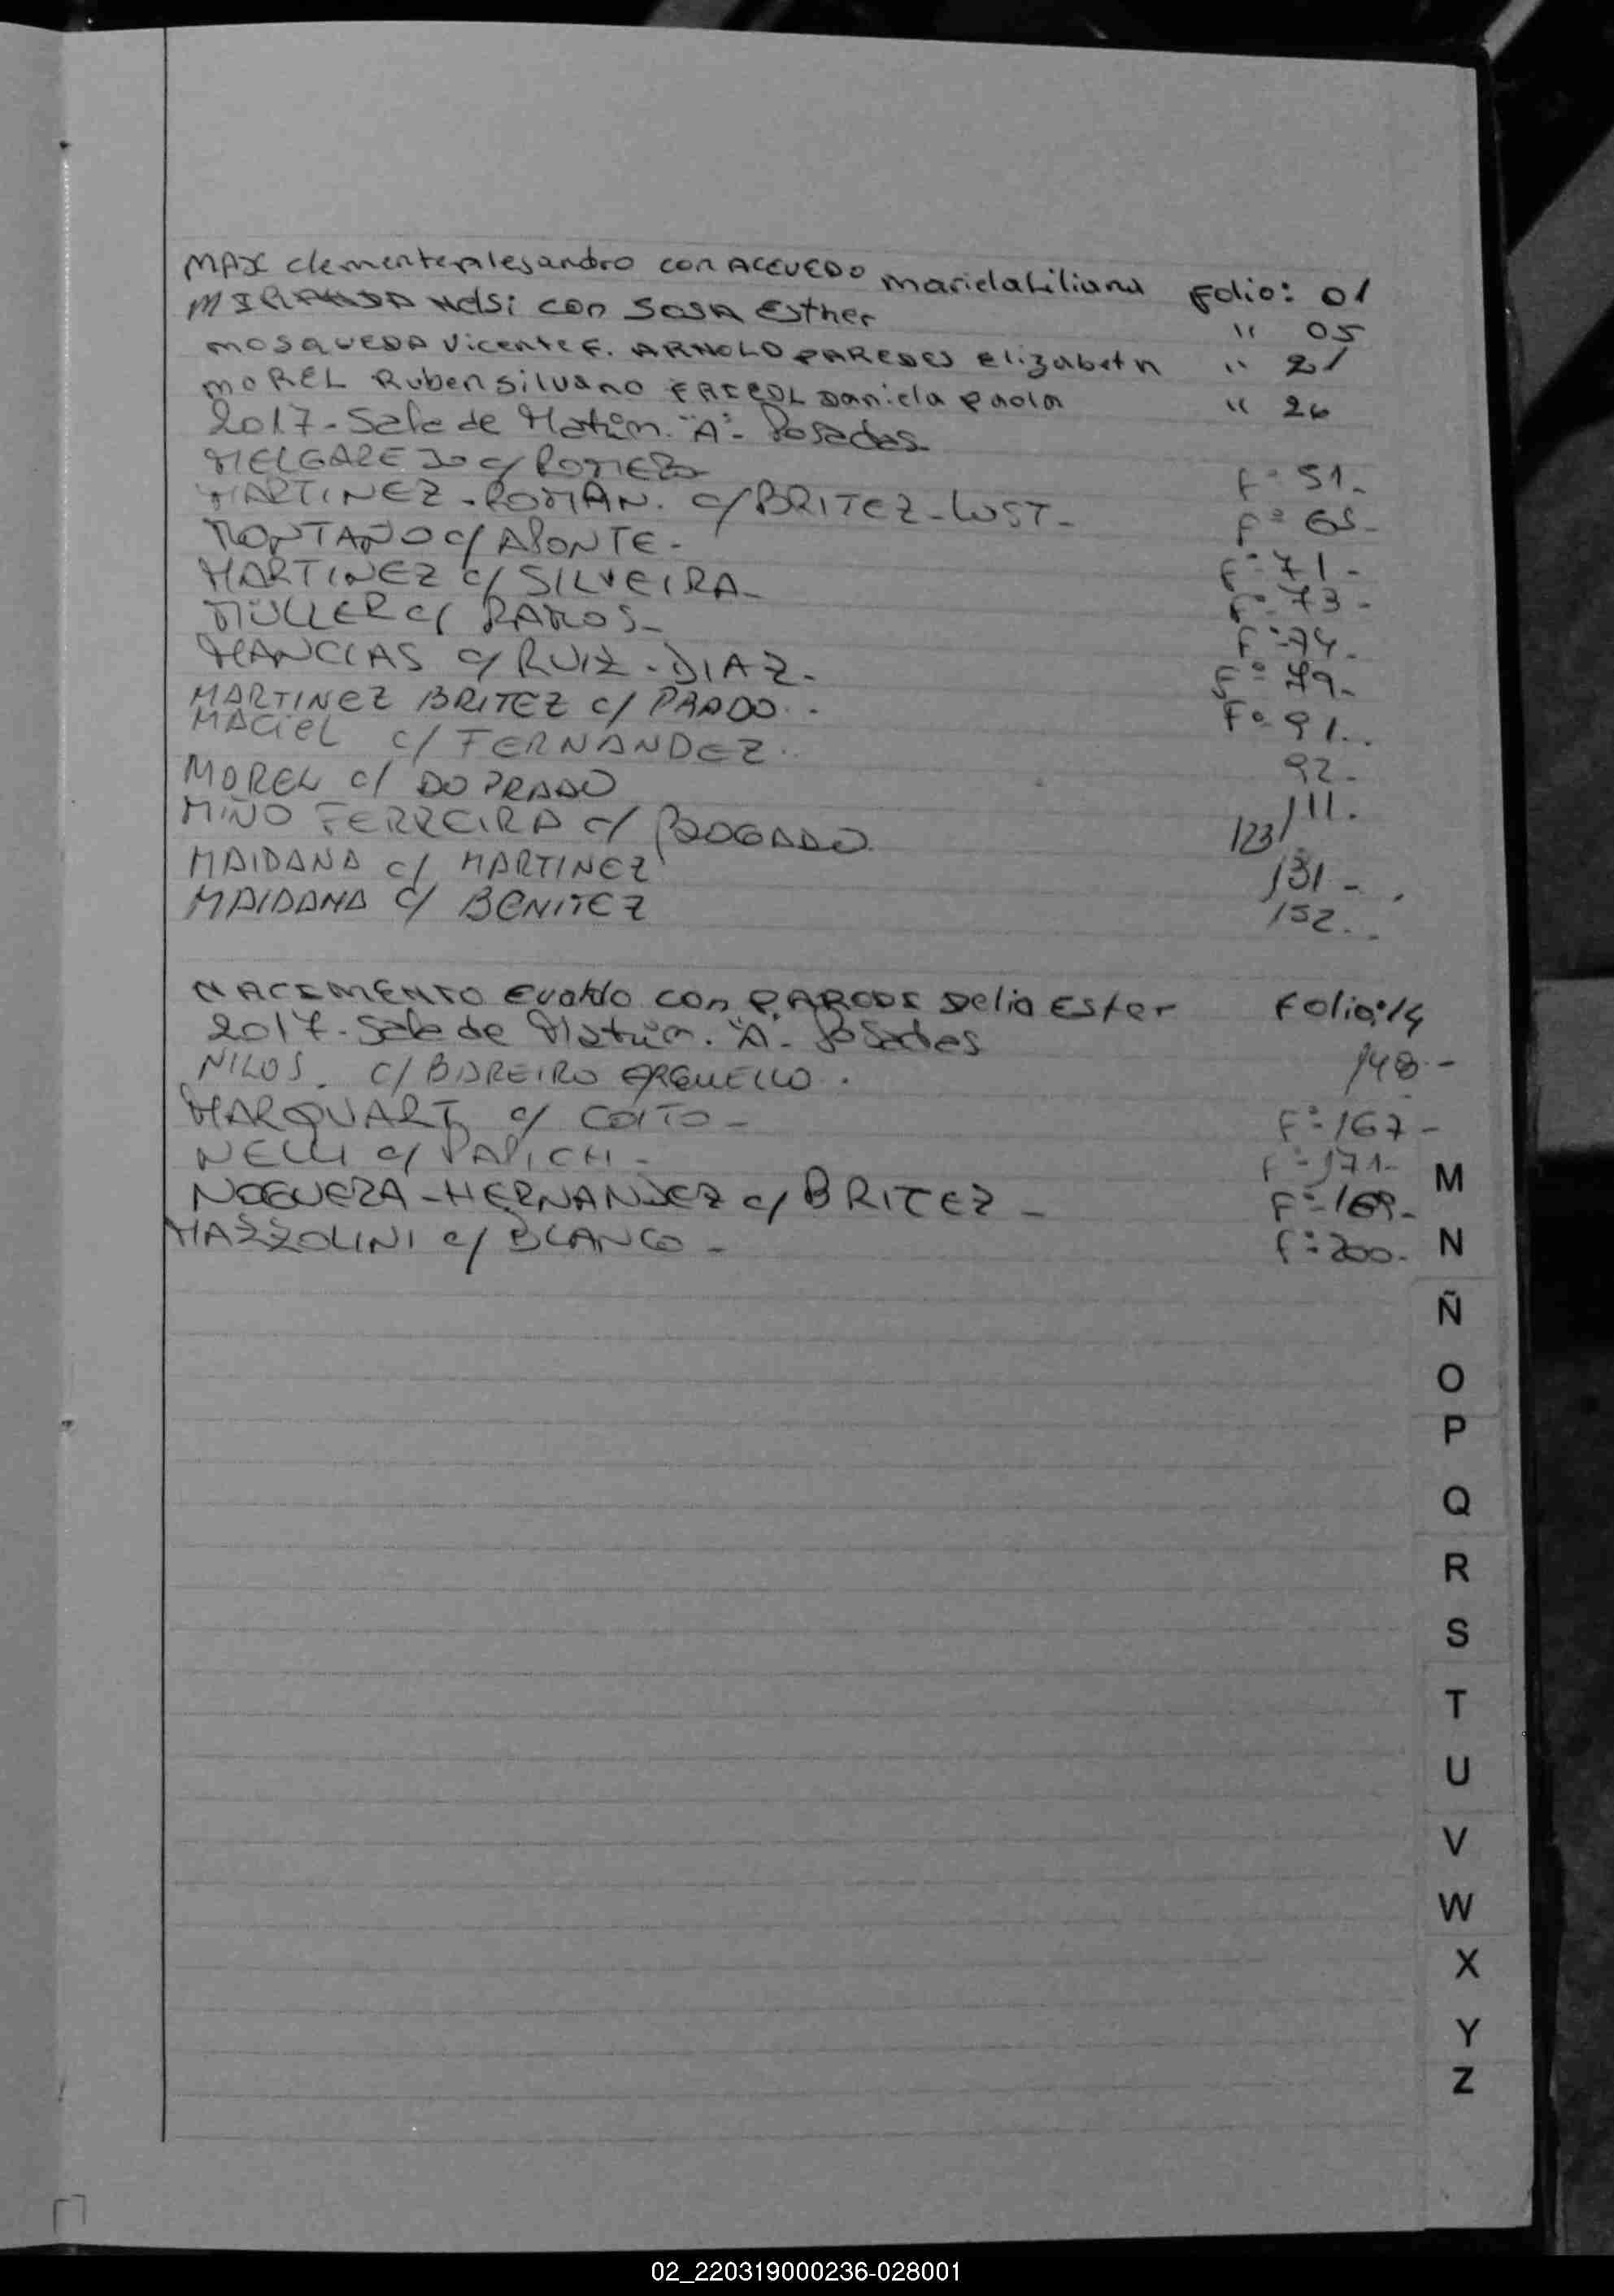 MAX Clemente Alejandro con ACEVEDO Mariela Liliana Folio: 01
MIRANDA Nelsi con SOSA Esther " 05
MOSQUEDA Vicente F. ARNOLD PAREDES Elizabeth " 21
MOREL Ruben Silvano Daniela Paola " 26
2017 - Sala de Matrim. "A" - Posadas
MELGAREJO c/ ROMERO Fº 51-
MARTINEZ - ROMAN. c/ BRITEZ - LUST - Fº 65-
MONTAÑO c/ APONTE - Fº 71-
MARTINEZ c/ SILVEIRA - Fº 73-
MÜLLER c/ RAMOS - Fº 74-
MANCIAS c/ RUIZ - DIAZ - Fº 79-
MARTINEZ BRITEZ c/ PRADO - Fº 91..
MACIEL c/ FERNANDEZ 92-
MOREL c/ DO PRADO 111.
MIÑO FERREIRA c/ BOGADO 123
MAIDANA c/ MARTINEZ 131-
MAIDANA c/ BENITEZ 152..
NACIMENTO Evaldo con PARODI Delia Ester Folio: 14
2017 - Sala de Matrim. "A" - Posadas
NILOS c/ BAREIRO ARGUELLO . 148-
MARQUART c/ COITO - Fº 167-
NELLI c/ PAPICH - Fº 171-
NOGUERA - HERNANDEZ c/ BRITEZ - Fº 169-
MAZZOLINI c/ BLANCO - Fº 200-
M
N
Ñ
O
P
Q
R
S
T
U
V
W
X
Y
Z
02_220319000236-028001